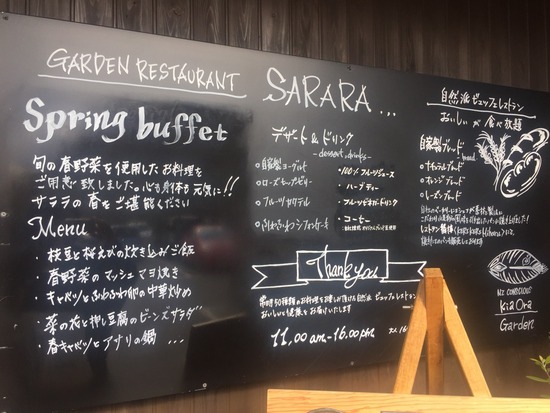 GARDEN RESTAURANT
Spring buffet
旬の春野菜を使用したお料理を
ご用意致しました。心も身体も元気に!!
サララの春をご堪能ください
Menu
・枝豆と桜えびの炊き込みご飯
・春野菜のマッシュ マヨ焼き
・キャベツとふわふわ卵の中華炒め
・菜の花と押し豆腐のビーンズサラダ
・春キャベツとアサリの鍋 ...
SARARA...
デザート & ドリンク
- dessert, drinks -
・自家製ヨーグルト
・ローズヒップゼリー
・フルーツカクテル
・ふわふわシフォンケーキ
・100% フルーツジュース
・ハーブティー
・フルーツビネガードリンク
・コーヒー
Thank you
常時50種類のお料理をお楽しみ頂ける自然派 ビュッフェレストラン
おいしいと健康をお届けいたします
11,00 am.-16.00 pm.
大人 16
自然派ビュッフェレストラン
おいしい が 食べ放題
自家製ブレッド
bread
・ナチュラルブレッド
・オレンジブレッド
・レーズンブレッド
Kia Ora
Garden